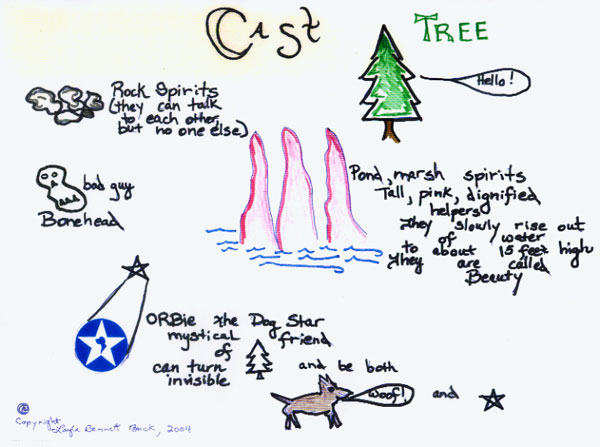 Cast
TREE
Hello!
Rock Spirits
(they can talk
to each other,
but no one else)
bad guy
Bonehead
Pond, marsh spirits
Tall, pink, dignified
helpers
They slowly rise out
of water
to about 15 feet high
They are called
Beauty
ORBie the Dog Star
mystical friend
of
can turn
invisible
and be both
Woof!
and
Copyright
Bennett 2004